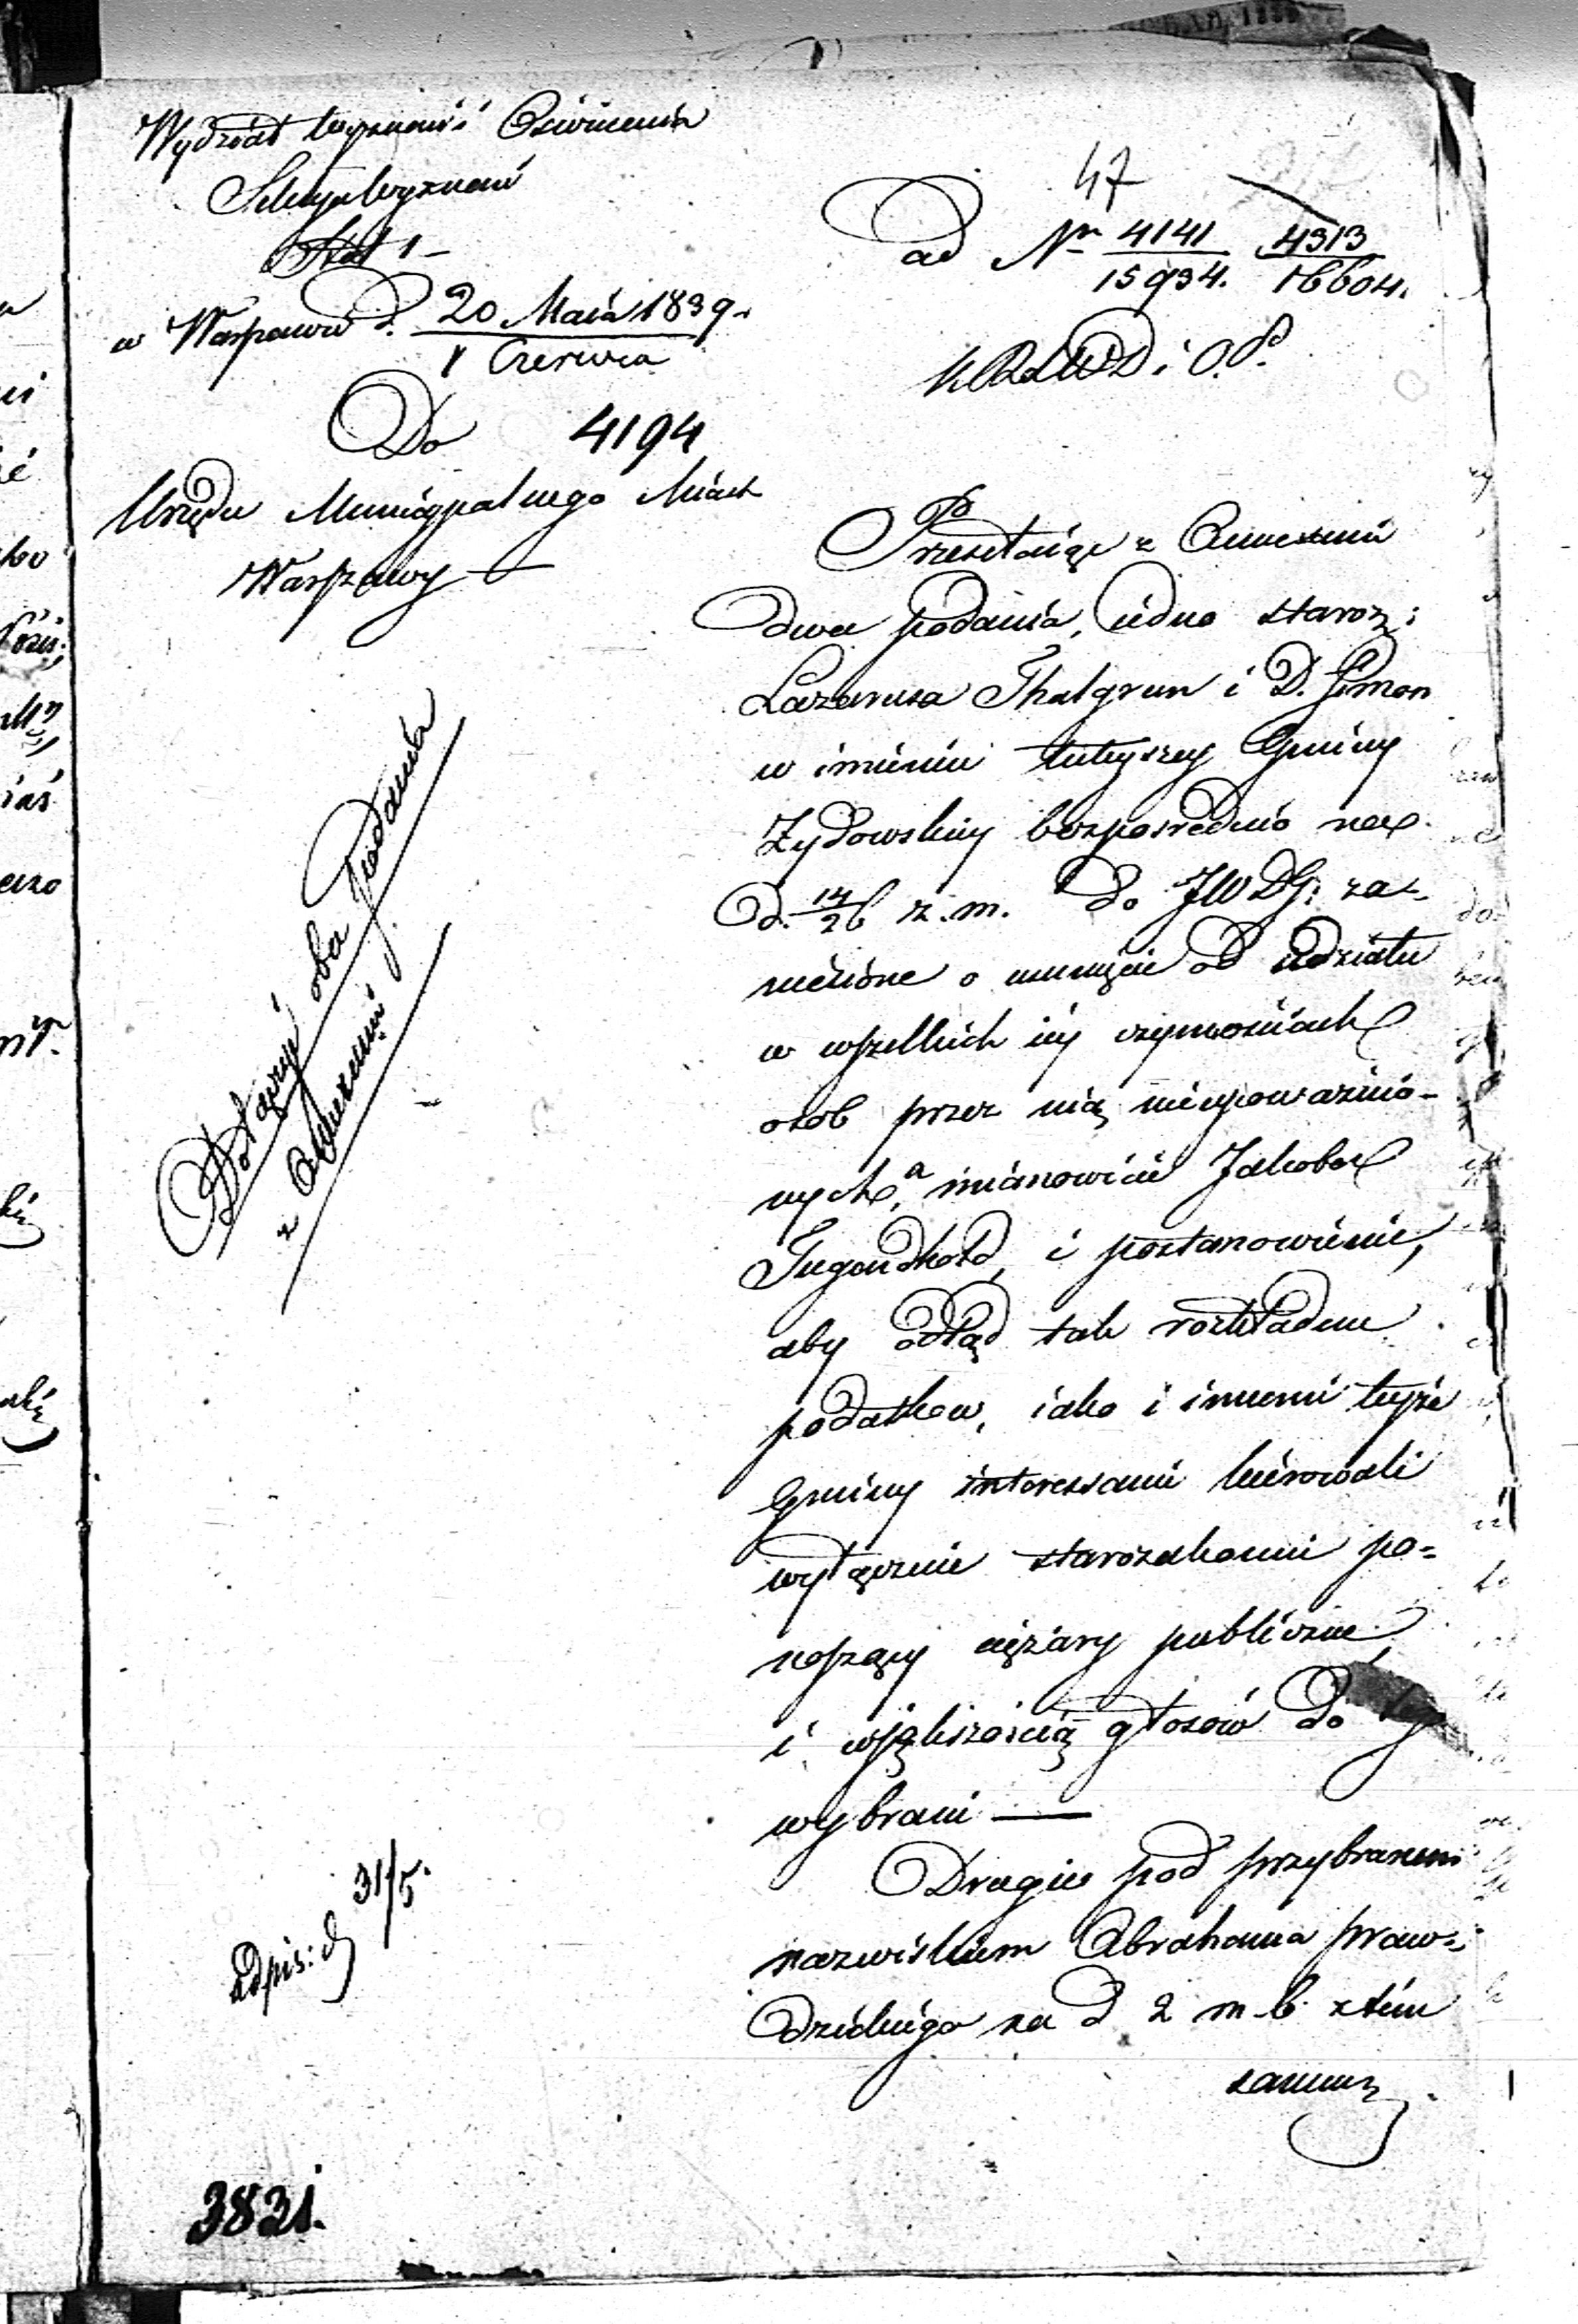 Wydział Wyznań i Oświecenia
Sekcya Wyznań
Stół 1 –
w Warszawie d. 20 Maia 1839.
1 Czerwca
Do 4194
Urzędu Municypalnego Miasta
Warszawy
47
ad Nr 4141 4313
15934. 16604.
K R S W D i O. P.
Przesyłaiąc z Anexami
dwa podania, iedno staroz:
Lazarusa Thalgrun i D. Simon
w imieniu tuteyszey Gminy
Żydowskiey bezpośrednio na
d. 14/26 z. m. do JW DG: za-
niesione o usunięcie od udziału
w wszelkich iey czynnościach
osob przez nią nieupoważnio-
nych, a mianowicie Jakoba
Tugendhold, i postanowienie,
aby odtąd tak rozkładem
podatkow, iako i innemi teyże
Gminy interessami kierowali
wyłącznie starozakonni po-
noszący ciężary publiczne,
i większością głosów do
wybrani —
Drugie pod przybranem
nazwiskiem Abrahama praw-
dziwego na d 2 m. b. z tém
samem
Dołączyć oba Podania
z Anexami
Odpis: d 31/5.
3831.